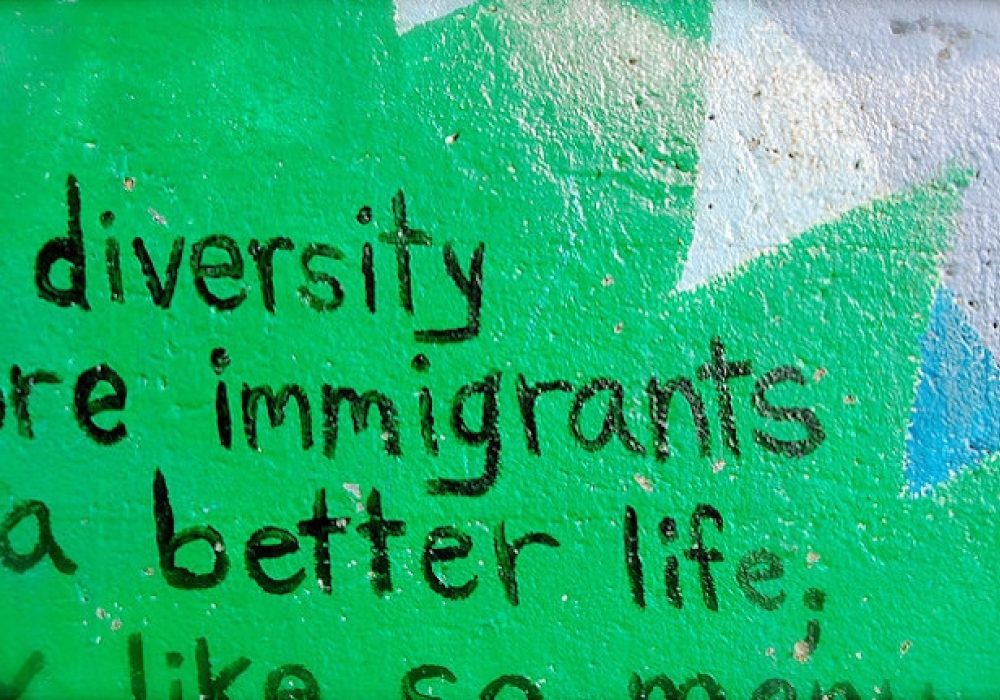 diversity
re immigrants
a better life;
like so many